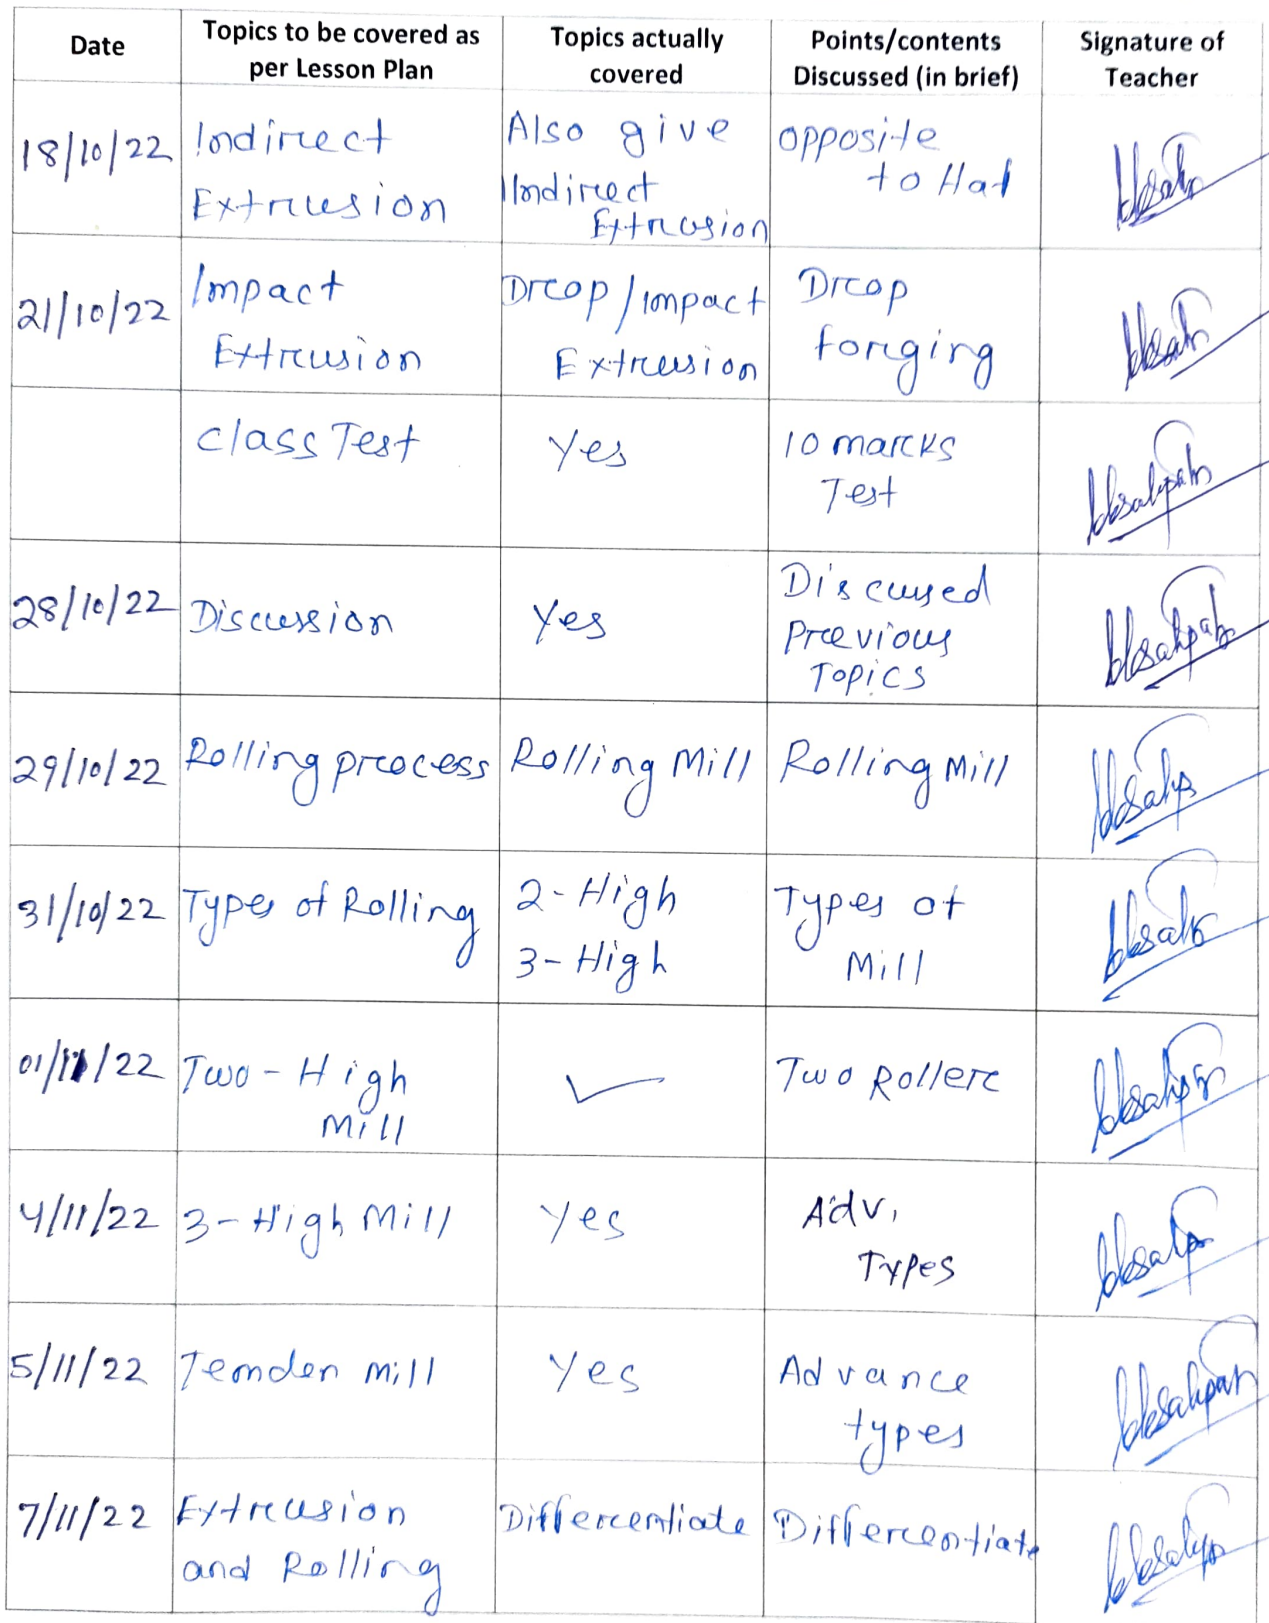 Date
Topics to be covered as
per Lesson Plan
Topics actually
covered
Points/contents
Discussed (in brief)
Signature of
Teacher
18/10/22
Indirect
Extrusion
Also give
Indirect
Extrusion
opposite
to Hat
21/10/22
Impact
Extrusion
Drop/impact
Extrusion
Drop
forging
class Test
Yes
10 marks
Test
28/10/22
Discussion
Yes
Discused
Previous
Topics
29/10/22
Rolling process
Rolling Mill
Rolling Mill
31/10/22
Types of Rolling
2-High
3-High
Types of
Mill
01/11/22
Two-High
Mill
✓
Two Roller
4/11/22
3-High Mill
Yes
Adv.
Types
5/11/22
Temden mill
Yes
Advance
types
7/11/22
Extrusion
and Rolling
Differentiate
Differentiate